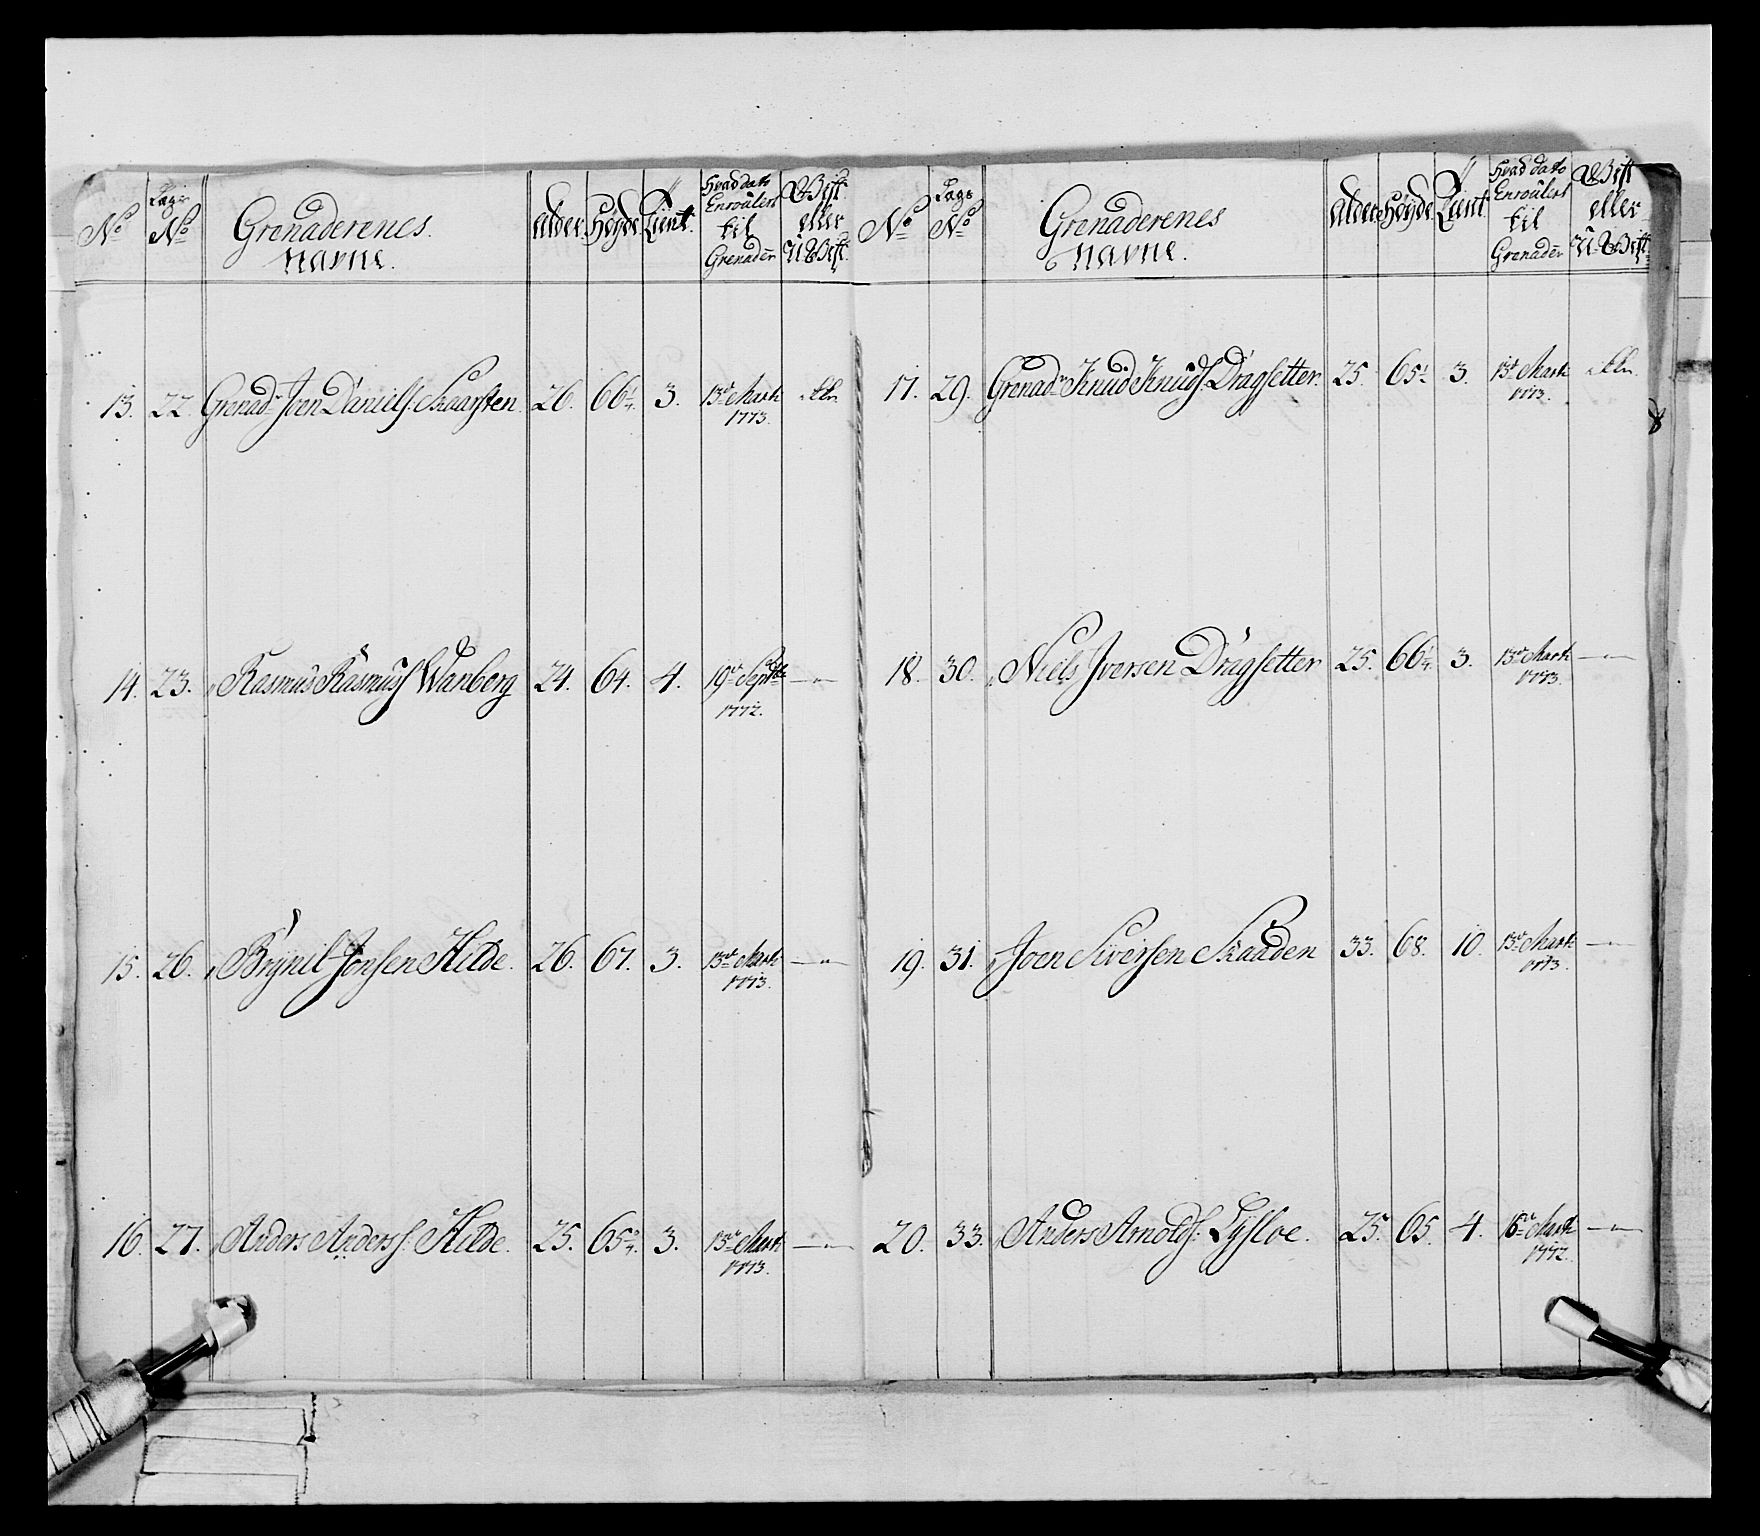 No
Lægs No
Grenaderenes navne.
Alder.
Høyde
Tient.
Hvad dato Enroulert til Grenader
Gift eller U-Gift.
13. 22 Grenadr Joen Daniels. Skaarsten. 26. 66¼. 3. 13de Marti 1773.
14. 23. " Rasmus Rasmuss Wanberg 24. 64. 4. 19de Septbr 1772. —"—
15. 26. " Brynil Jonsen Hilde. 26. 67. 3. 13de Marti 1773. —"—
16. 27. " Anders Anderss: Hilde. 25. 65¾. 3. 13de Marti 1773. —"—
No
Lægs No
Grenaderenes navne.
Alder
Høyde
Tient.
Hvad dato Enroulert til Grenader
Gift eller U-Gift
17. 29. Grenadr Knud Knuds Dragsetter. 25. 65½ 3. 13de Marti 1773.
18. 30. " Niels Iversen Dragsetter 25. 66¼. 3. 13de Marti 1773. —"—
19. 31. " Joen Siversen Skaaden 33. 68. 10. 13de Marti 1773. —"—
20. 33. " Anders Arnolds: Lysloe. 25. 65. 4. 16de Marti 1772. —"—